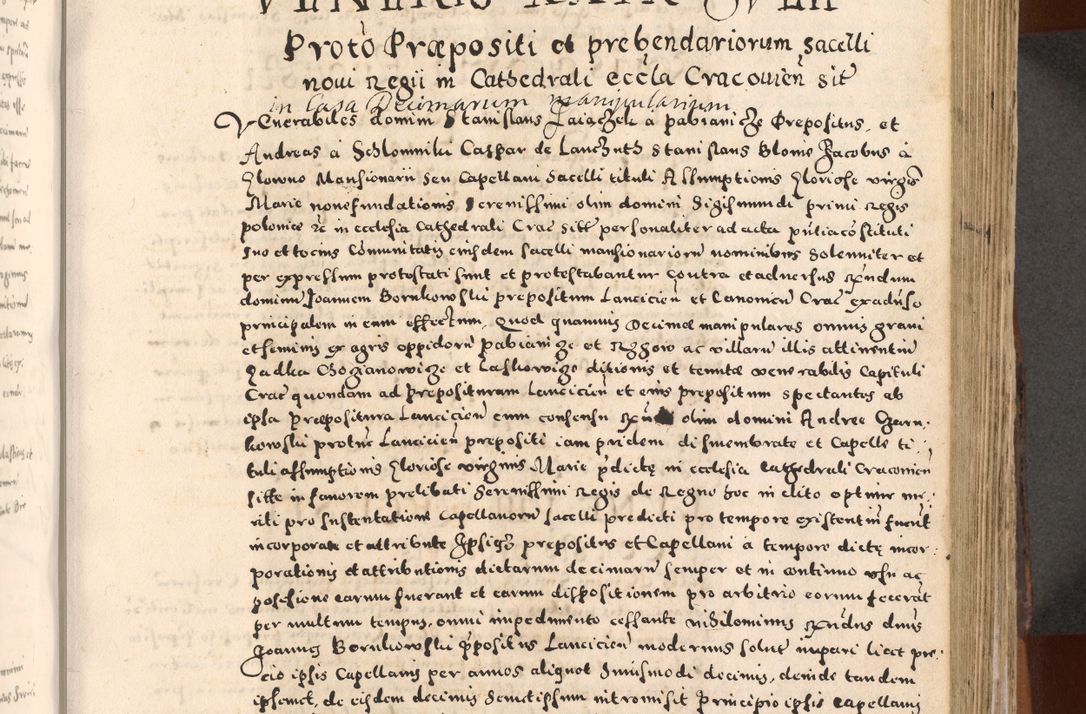 Proto Præpositi et prebendariorum sacelli
noui Regii in Cathedrali eccla Cracouien̄ site
in casa Decimarum manipularium
Venerabiles domini Stanislaus Zaiączek a pabianicze Prepositus, et
Andreas a Schlomniki Caspar de Lanczuth Stanislaus Blonie Jacobus a
Glowno Mansionarii seu Capellani Sacelli tituli Assumptionis Gloriose virgīs
Marie noue fundationis Serenissimi olim domini Sigismundi primi Regis
polonice rc̄ in ecclesia Cathedrali Crac̄ site personaliter ad acta pn̄tia cōstituti
suo et tocius Comunitatis eiusdem sacelli mansionarioru nominibus solenniter et
per expressum protestati sunt et protestabantur contra et aduersus Rn̄dum
dominū Joannem Bornkowski prepositum Lancicien̄ et Canonicū Crac̄ ex aduso
principalem in eum effectum. Quod quamuis Decimæ manipulares omnis grani
et seminis ex agris oppidorū pabianicze et Rzgow ac villarū illis attinentiū
Zadka Chozianowicze et Laskowicze ditionis et tenute venerabilis Capituli
Crac̄ quondam ad Preposituram Lancicien̄ et eius prepositum spectantes ab
ipsa Præpositura Lancicien̄ cum consensu olim domini Andree Czarn:
kowski protunc̄ Lancicien̄ prepositi iam pridem dismembrate et Capelle ti:
tuli assumptionis Gloriose virginis Marie p̄dictę in ecclesia Cathedrali Cracouien̄
sitte in fauorem prelibati Serenissimi Regis de Regno hoc in clito optime me:
riti pro sustentatione Capellanorū sacelli predicti pro tempore existentiū fuerūt
incorporate et attribute Ipsiqz prepositus et Capellani a tempore dictę incor:
porationis et attributionis dictarum decimarū semper et in continuo vsu ac
possesione earum fuerant et earum dispositionem pro arbitrio eorum fecerāt
per multum tempus, omni impedimento cessante nihilominus Rn̄dus dn̄us
Joannes Bornkowski p̄positus Lancicien̄ modernus solut impari licet pre:
cio ipsis Capellanis per annos aliquot huiusmodi decimis, deinde tandem
ipsemet, de eisdem decimis semetipsum intromisit Principio ipsis Capellanis